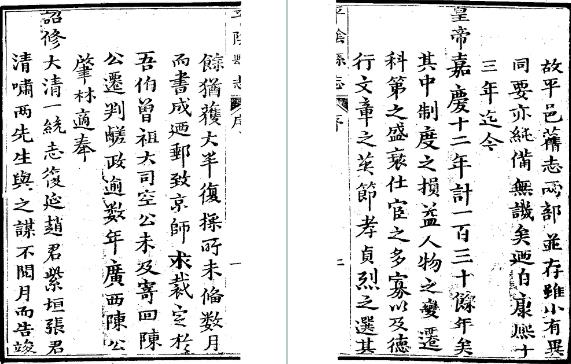 故平邑舊志兩部並存雖小有異
同要亦純備無譏矣迺自康熙十
三年迄今
皇帝嘉慶十二年計一百三十餘年矣
其中制度之損益人物之變遷
科第之盛衰仕宦之多寡以及德
行文章之英節孝貞烈之選其
平陰縣志 序
平陰縣志 序
餘猶獲大半復採所未備數月
而書成迺郵致京師求裁定於
吾伯曾祖大司空公未及寄回陳
公遷判鹺政逾數年廣西陳公
肇林適奉
詔修大清一統志復延趙君紫垣張君
清嘯兩先生與之謀不閱月而告竣